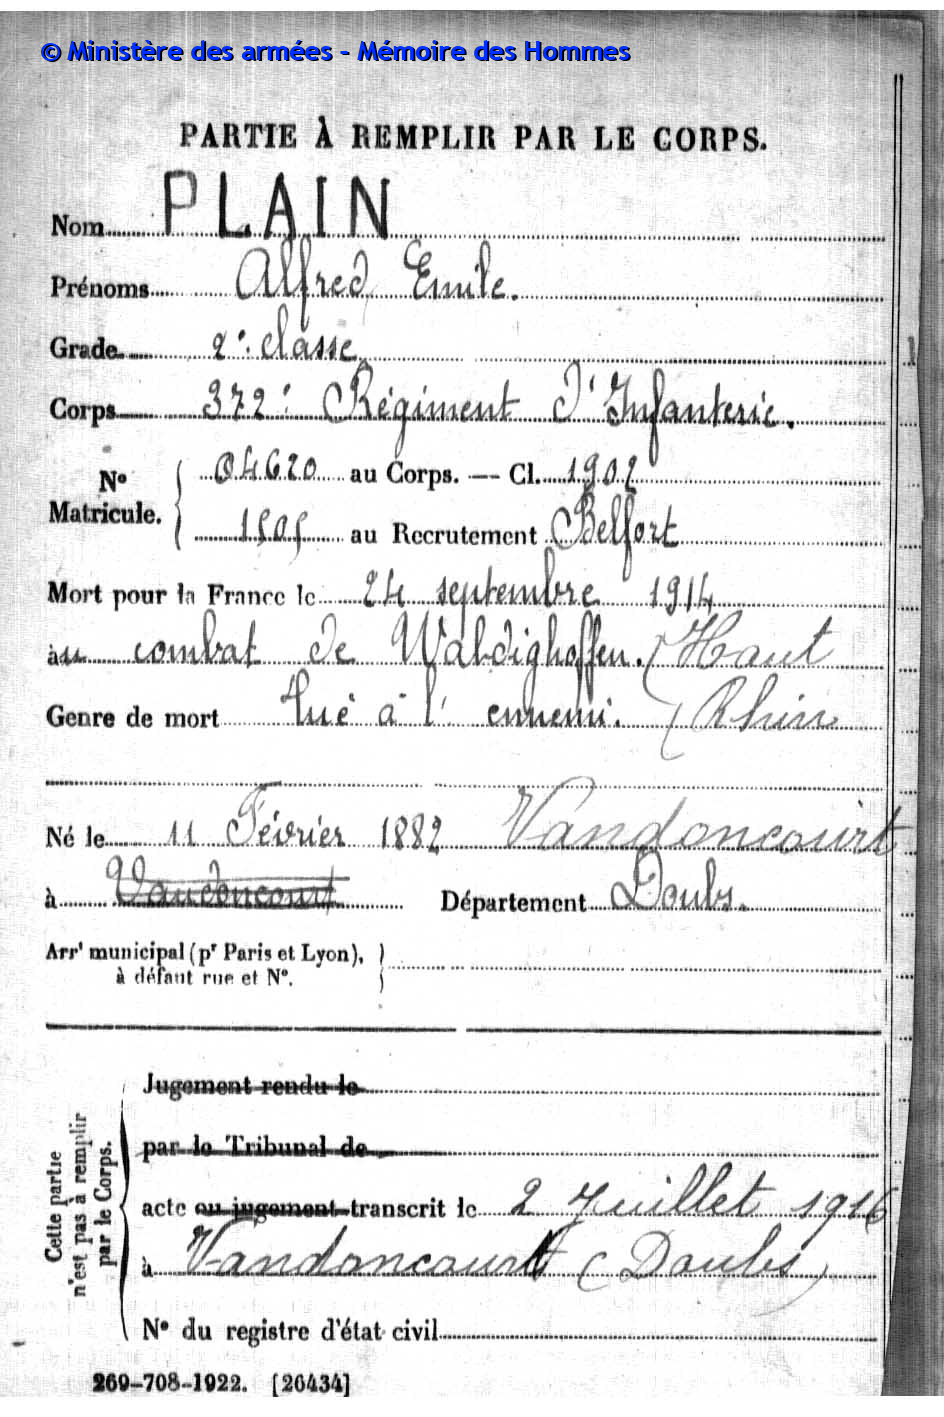 © Ministère des armées - Mémoire des Hommes
PARTIE À REMPLIR PAR LE CORPS.
Nom PLAIN
Prénoms Alfred Emile.
Grade 2e classe
Corps 372e Régiment d'Infanterie.
No Matricule. 04620 au Corps. — Cl. 1902
1505 au Recrutement Belfort
Mort pour la France le 24 septembre 1914
au combat de Waldighoffen. (Haut
Genre de mort tué à l'ennemi. Rhin
Né le 11 Février 1882 Vandoncourt
à Vaudoncourt Département Doubs.
Arrt municipal (pr Paris et Lyon),
à défaut rue et No.
Cette partie
n'est pas à remplir
par le Corps.
Jugement rendu le
par le Tribunal de
acte ou jugement transcrit le 2 Juillet 1916
à Vandoncourt (Doubs)
No du registre d'état civil
269-708-1922. [26434]